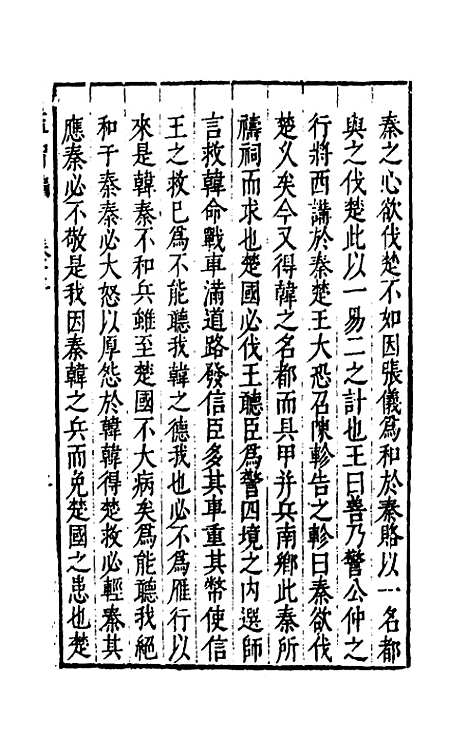 秦之心欲伐楚不如因張儀爲和於秦賂以一名都
與之伐楚此以一易二之計也王曰善乃警公仲之
行將西講於秦楚王大恐召陳軫告之軫曰秦欲伐
楚乆矣今又得韓之名都而具甲并兵南鄉此秦所
禱祠而求也楚國必伐王聽臣爲警四境之内選師
言救韓命戰車滿道路發信臣多其車重其幣使信
王之救已爲不能聽我韓之德我也必不爲雁行以
來是韓秦不和兵雖至楚國不大病矣爲能聽我絕
和于秦秦必大怒以厚怨於韓韓得楚救必輕秦其
應秦必不敬是我因秦韓之兵而免楚國之患也楚